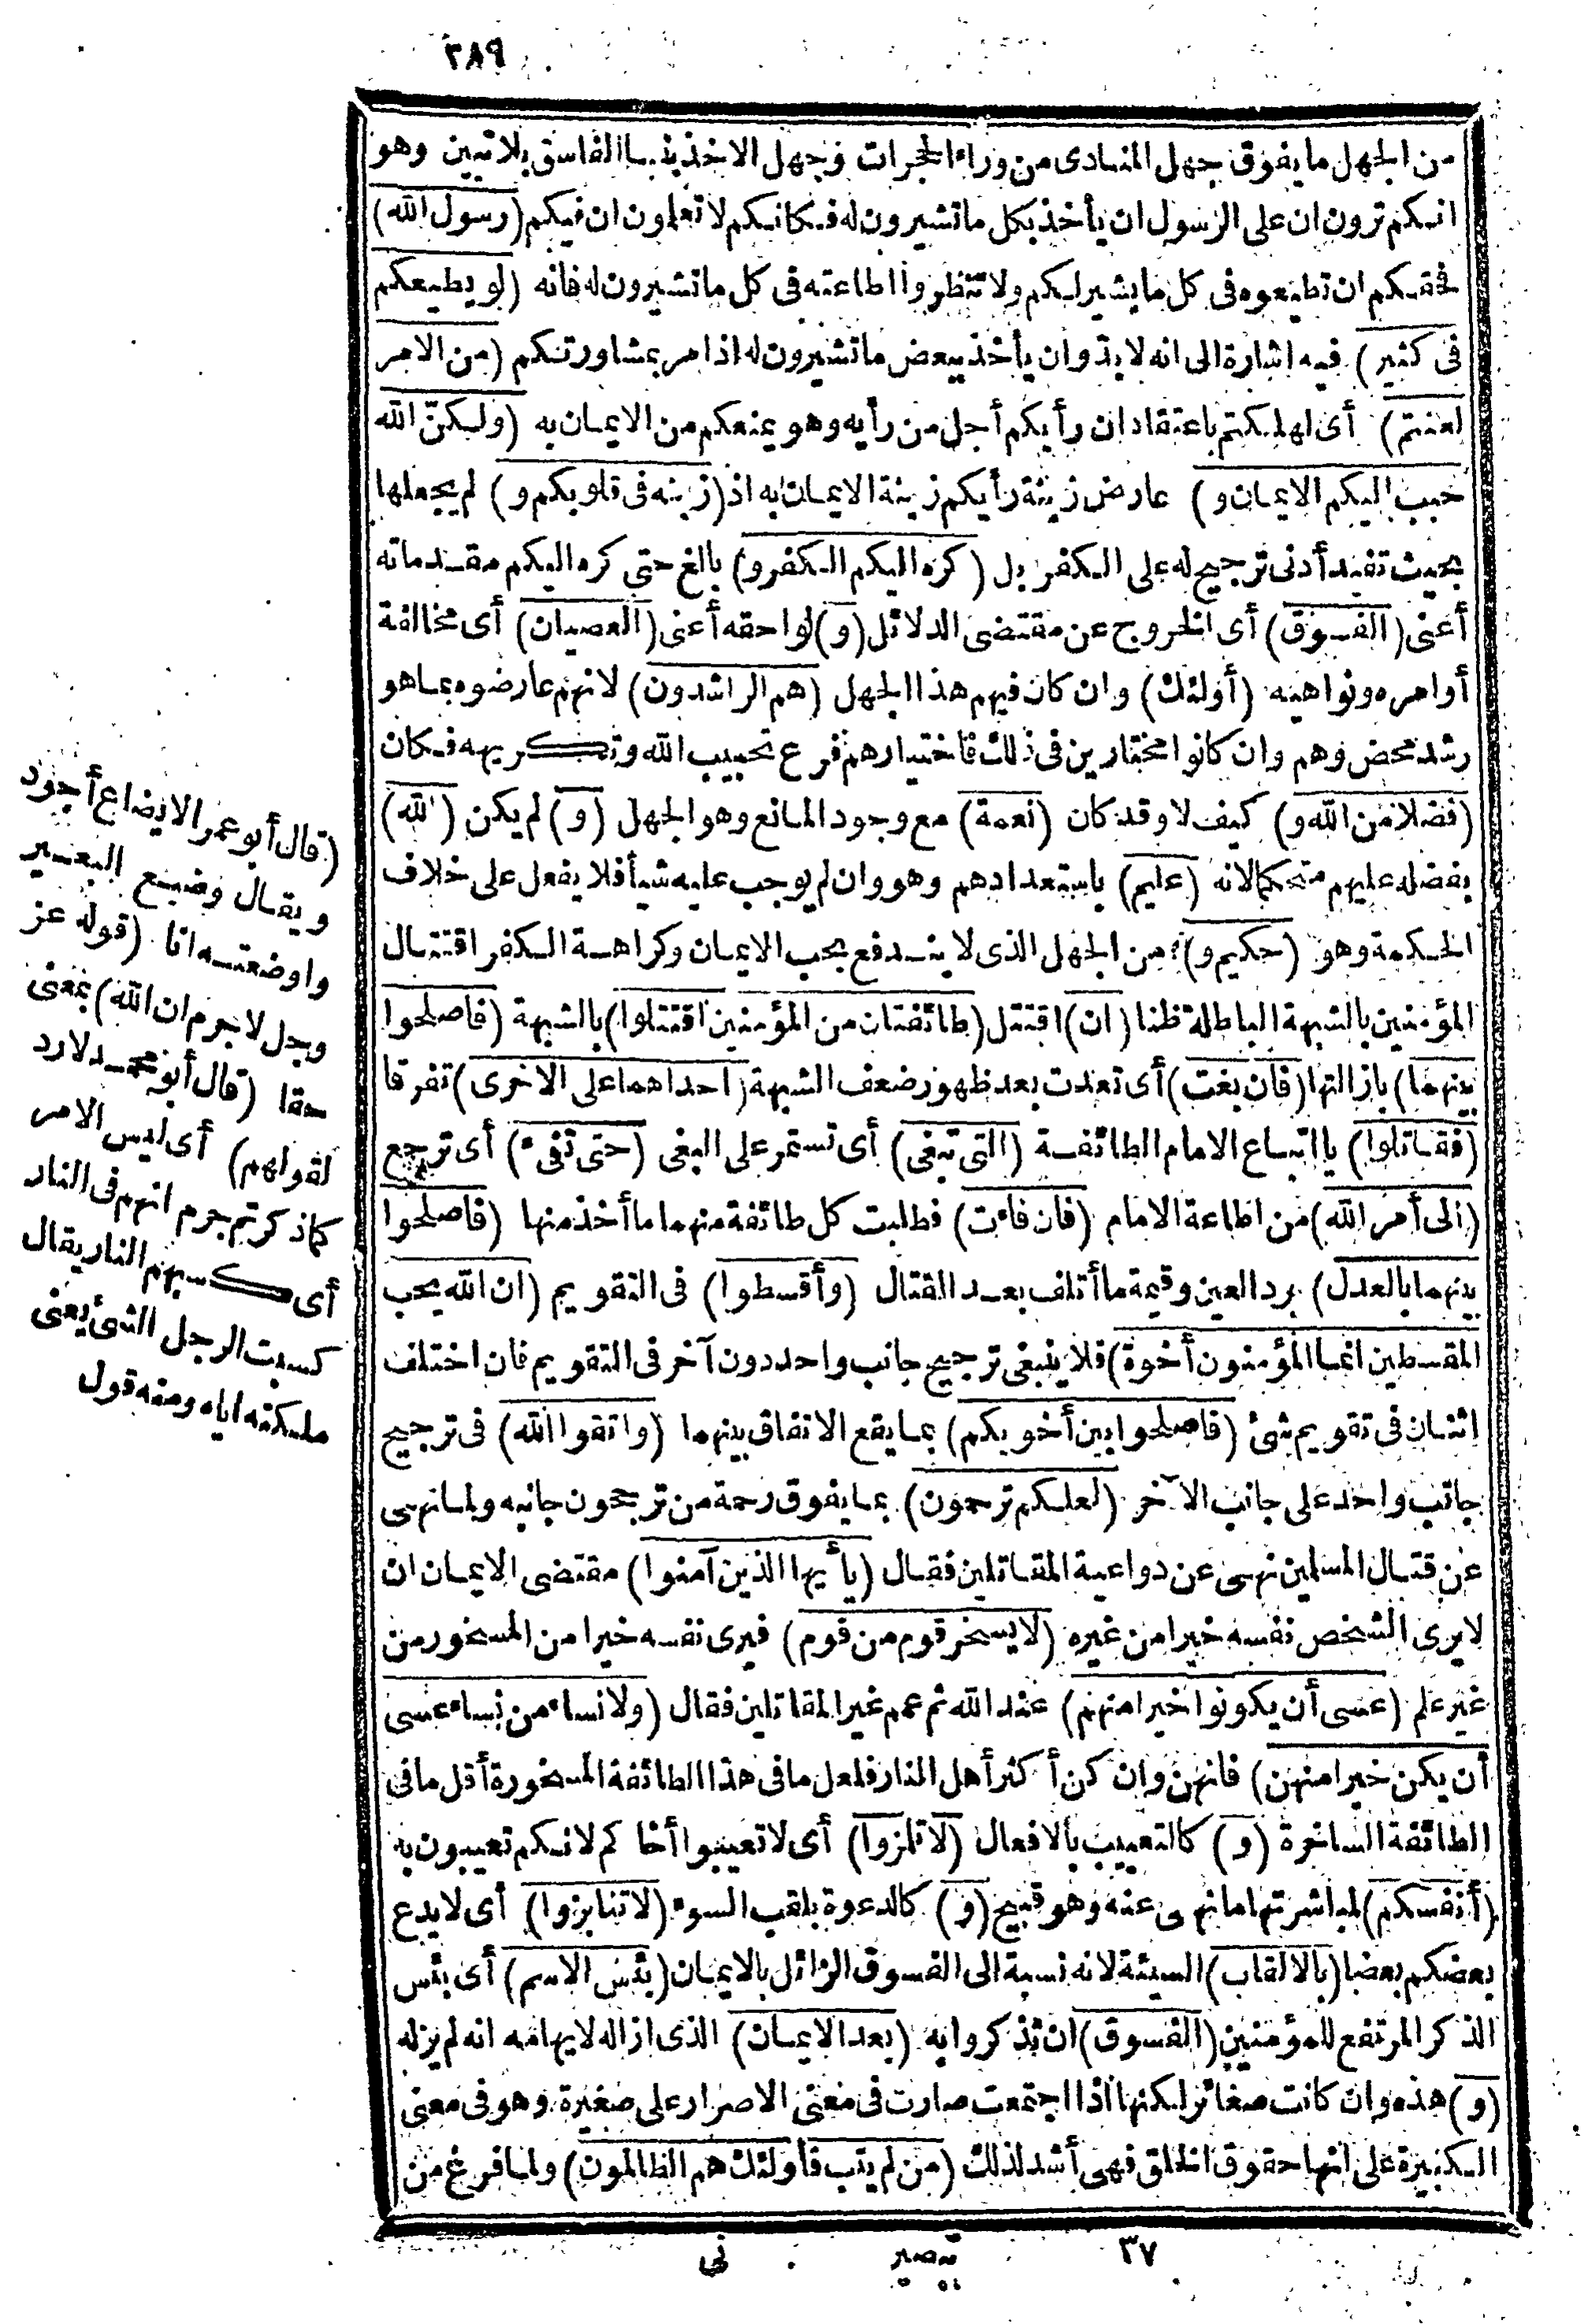 ٢٨٩
من الجهل ما يفوق جهل المنادى من وراء الحجرات وجهل الاخذ بنبا الفاسق بلا تبين وهو
انكم ترون ان على الرسول ان يأخذ بكل ما تشيرون له فكانكم لا تعلمون ان فيكم (رسول الله)
فحقكم ان تطيعوه فى كل ما يشير لكم ولا تنظروا اطاعته فى كل ما تشيرون له فانه (لو يطيعكم
فى كثير) فيه اشارة الى انه لا بد وان يأخذ ببعض ما تشيرون له اذا مر بمشاورتكم (من الامر
لعنتم) أى لهلكتم باعتقاد ان رأيكم أجل من رأيه وهو يمنعكم من الايمان به (ولكنّ الله
حبب اليكم الايمان و) عارض زينة رأيكم زينة الايمان به اذ (زينه فى قلوبكم و) لم يجعلها
بحيث تفيد أدنى ترجيح له على الكفر بل (كره اليكم الكفرو) بالغ حتى كره اليكم مقدماته
أعنى (الفسوق) أى الخروج عن مقتضى الدلائل (و) لواحقه أعنى (العصيان) أى مخالفة
أوامره ونواهيه (أولئك) وان كان فيهم هذا الجهل (هم الراشدون) لانهم عارضوه بما هو
رشد محض وهم وان كانوا مختارين فى ذلك فاختيارهم فرع تحبيب الله وتكريهه فكان
(فضلا من الله و) كيف لا وقد كان (نعمة) مع وجود المانع وهو الجهل (و) لم يكن (الله)
بفضله عليهم متحكما لانه (عليم) باستعدادهم وهو وان لم يوجب عليه شيأ فلا يفعل على خلاف
الحكمة وهو (حكيم و) من الجهل الذى لا يندفع بحب الايمان وكراهة الكفر اقتتال
المؤمنين بالشبهة الباطلة ظنا (ان) اقتتل (طائفتان من المؤمنين اقتتلوا) بالشبهة (فاصلحوا
بينهما) بازالتها (فان بغت) أى تعدت بعد ظهور ضعف الشبهة (احداهما على الاخرى) تفرقا
(فقاتلوا) يا اتباع الامام الطائفة (التى تبغى) أى تستمر على البغى (حتى تفىء) أى ترجع
(الى أمر الله) من اطاعة الامام (فان فاءت) فطلبت كل طائفة منهما ما أخذ منها (فاصلحوا
بينهما بالعدل) برد العين وقيمة ما أتلف بعد القتال (وأقسطوا) فى التقويم (ان الله يحب
المقسطين انما المؤمنون أخوة) فلا ينبغى ترجيح جانب واحد دون آخر فى التقويم فان اختلف
اثنان فى تقويم شئ (فاصلحوا بين أخويكم) بما يقع الاتفاق بينهما (واتقوا الله) فى ترجيح
جانب واحد على جانب الآخر (لعلكم ترحمون) بما يفوق رحمة من ترجحون جانبه ولما نهى
عن قتال المسلمين نهى عن دواعية المقاتلين فقال (يا أيها الذين آمنوا) مقتضى الايمان ان
لا يرى الشخص نفسه خيرا من غيره (لا يسخر قوم من قوم) فيرى نفسه خيرا من المسخور من
غير علم (عسى أن يكونوا خيرا منهم) عند الله ثم عمم غير المقاتلين فقال (ولا نساء من نساء عسى
أن يكن خيرا منهن) فانهن وان كن أكثر أهل النار فلعل ما فى هذا الطائفة المسخورة أقل ما فى
الطائفة الساخرة (و) كالتعييب بالافعال (لا تلمزوا) أى لا تعيبوا أخا كم لانكم تعيبون به
(أنفسكم) لمباشرتها ما نهى عنه وهو قبيح (و) كالدعوة بلقب السوء (لا تنابزوا) أى لا يدع
بعضكم بعضا (بالالقاب) السيئة لانه نسبة الى الفسوق الزائل بالايمان (بئس الاسم) أى بئس
الذكر المرتفع للمؤمنين (الفسوق) ان تذكروا به (بعد الايمان) الذى ازاله لايهامه انه لم يزله
(و) هذه وان كانت صغائر لكنها اذا اجتمعت صارت فى معنى الاصرار على صغيرة وهو فى معنى
الكبيرة على انها حقوق الخلق فهى أشد لذلك (من لم يتب فأولئك هم الظالمون) ولما فرغ من
٣٧ تبصير نى
(قال أبو عمر الايضاع أجود
ويقال وضع البعير
واوضعته انا (قوله عز
وجل لا جرم ان الله) بمعنى
حقا (قال أبو محمد لا رد
لقولهم) أى ليس الامر
كما ذكرتم جرم انهم فى النار
أى كسبهم النار يقال
كسبت الرجل الشئ يعنى
ملكته اياه ومنه قول